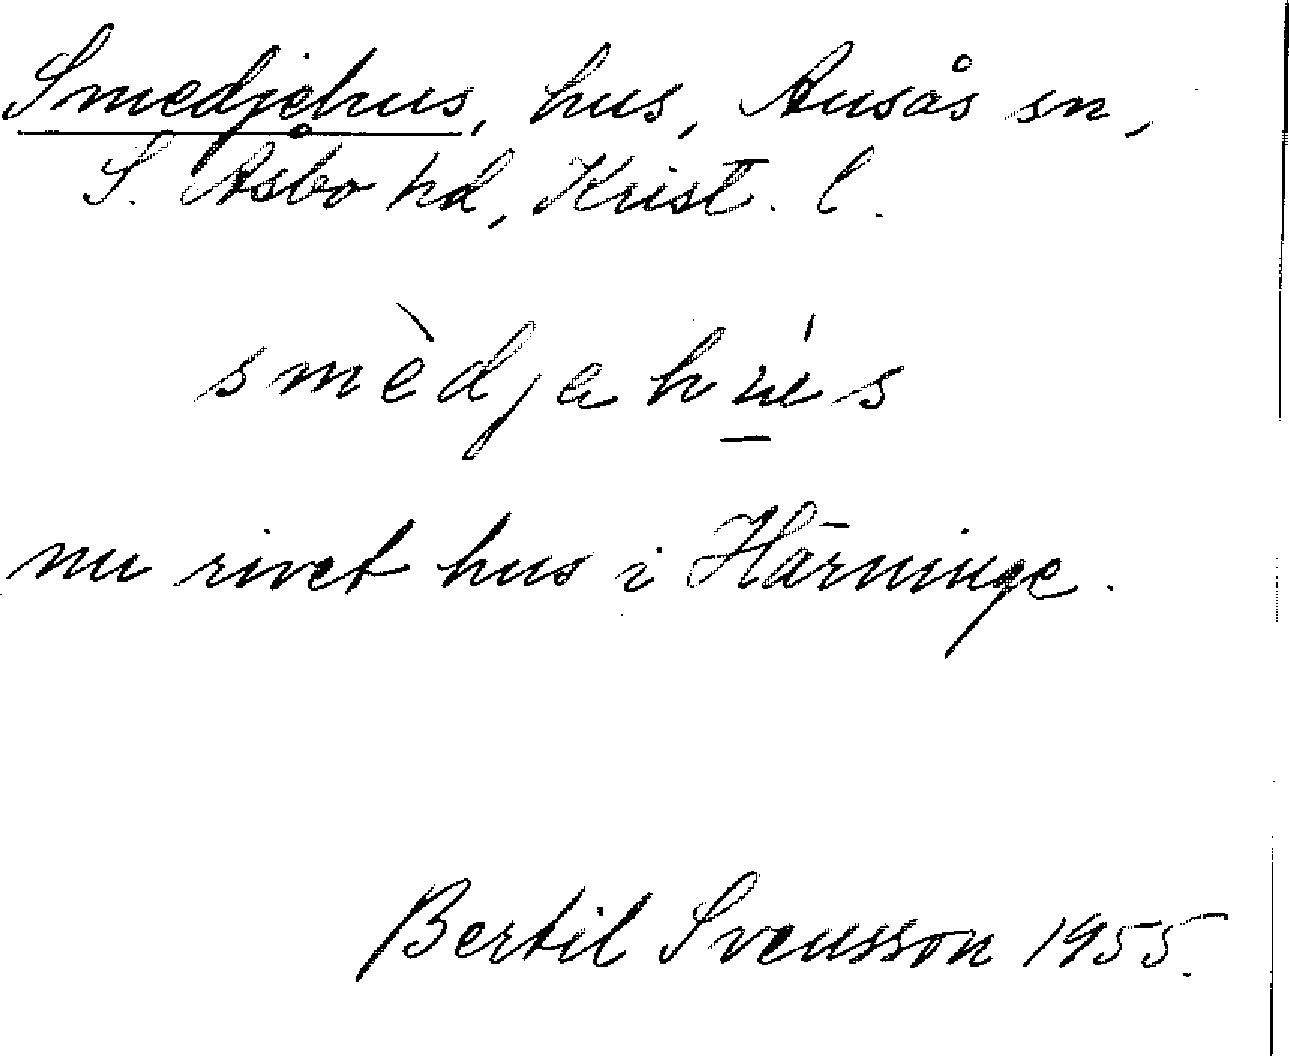 Smedjehus, hus, Ausås sn,
S. Åsbo hd, Krist. l.
smèdjahu̱´s
nu rivet hus i Härninge.
Bertil Svensson 1955.